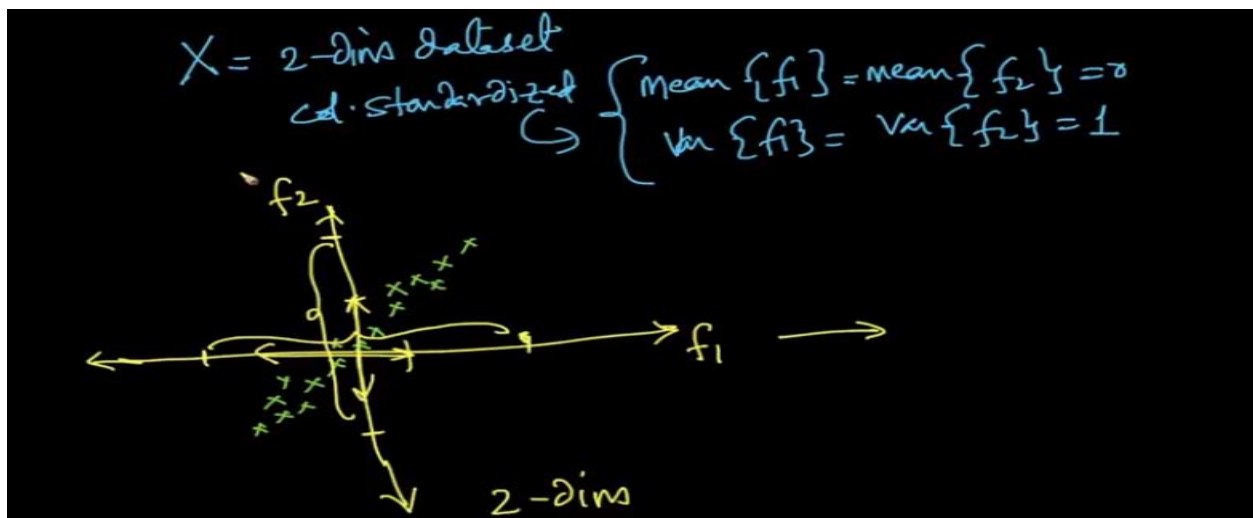 X = 2-dims dataset
col. standardized
mean {f1} = mean {f2} = 0
Var {f1} = Var {f2} = 1
f2
f1
2-dims